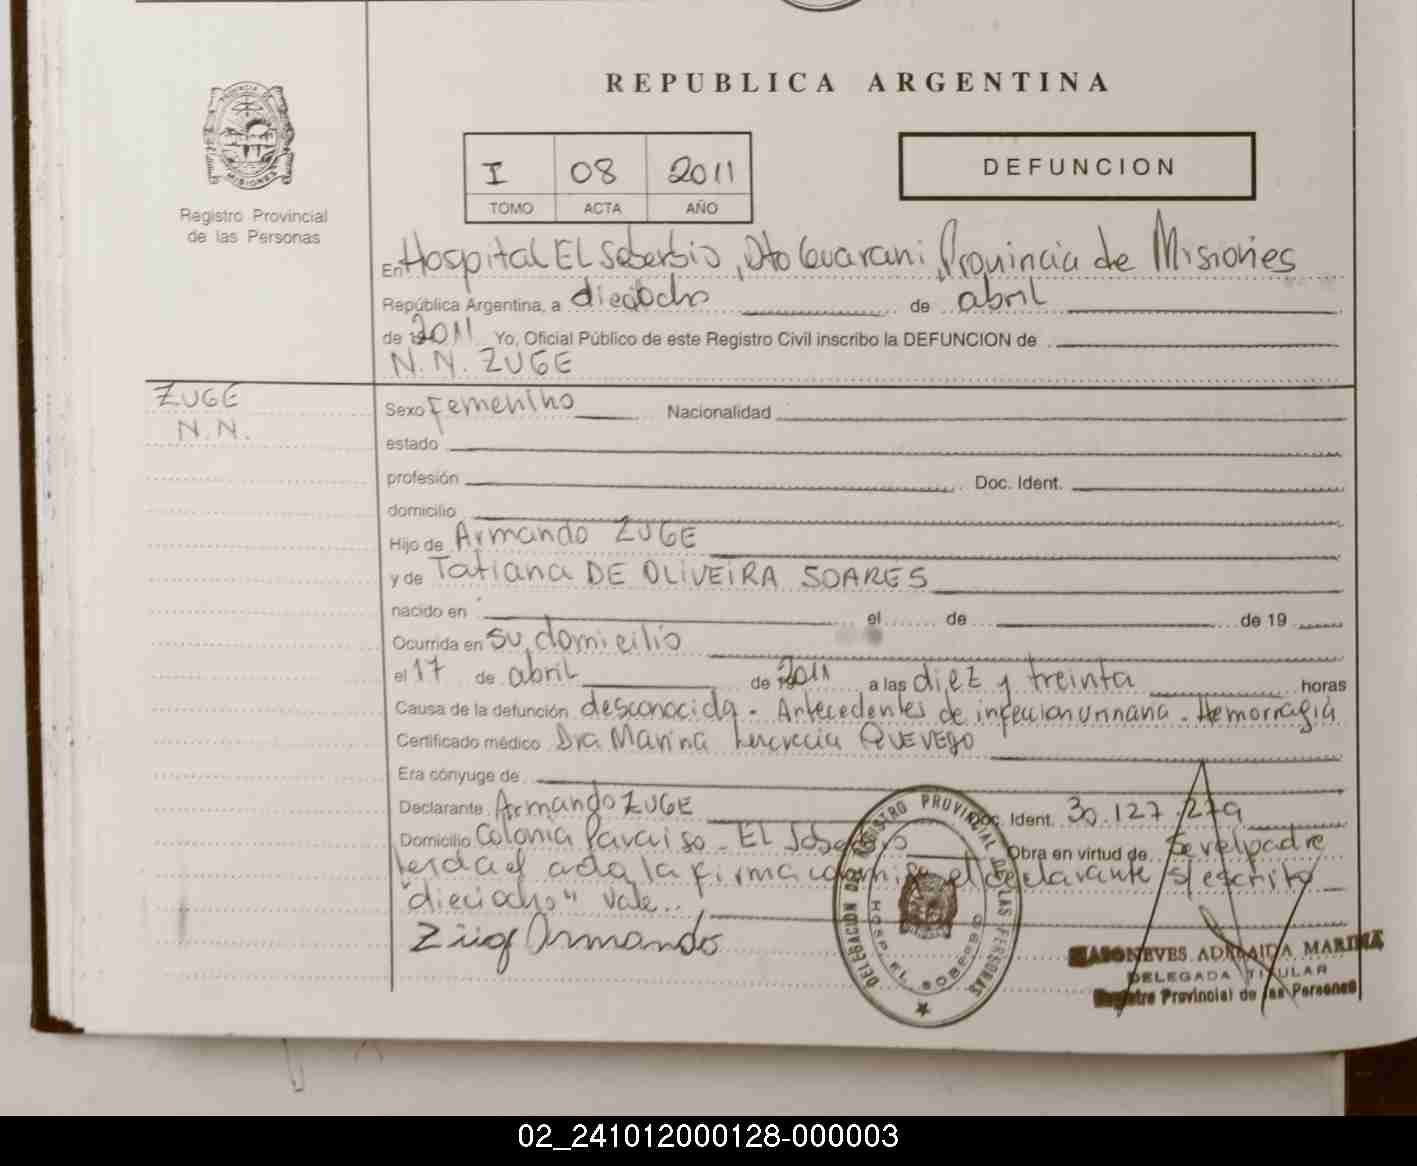 REPUBLICA ARGENTINA
PROVINCIA DE MISIONES
Registro Provincial
de las Personas
I 08 2011
TOMO ACTA AÑO
DEFUNCION
En Hospital EL Soberbio, Dto Guarani, Provincia de Misiones
República Argentina, a dieciocho de abril
de 2011 Yo, Oficial Público de este Registro Civil inscribo la DEFUNCION de
N.N. ZUGE
ZUGE
N.N.
Sexo Femenino Nacionalidad
estado
profesión Doc. Ident.
domicilio
Hijo de Armando ZUGE
y de Tatiana DE OLIVEIRA SOARES
nacido en el de de 19
Ocurrida en su domicilio
el 17 de abril de 2011 a las diez y treinta horas
Causa de la defunción desconocida - Antecedentes de infeccion urinaria - Hemorragia
Certificado médico Dra Marina Lucrecia QUEVEDO
Era cónyuge de
Declarante Armando ZUGE Doc. Ident. 30.127.279
Domicilio Colonia Paraiso - EL Soberbio Obra en virtud de Ser el padre
Leida el acta la firma conmigo el declarante s/escrito
"dieciocho" Vale.
Züge Armando
DELEGACION DEL REGISTRO PROVINCIAL DE LAS PERSONAS
HOSP. EL SOBERBIO
NEVES ADELAIDA MARINA
DELEGADA TITULAR
Registro Provincial de las Personas
02_241012000128-000003